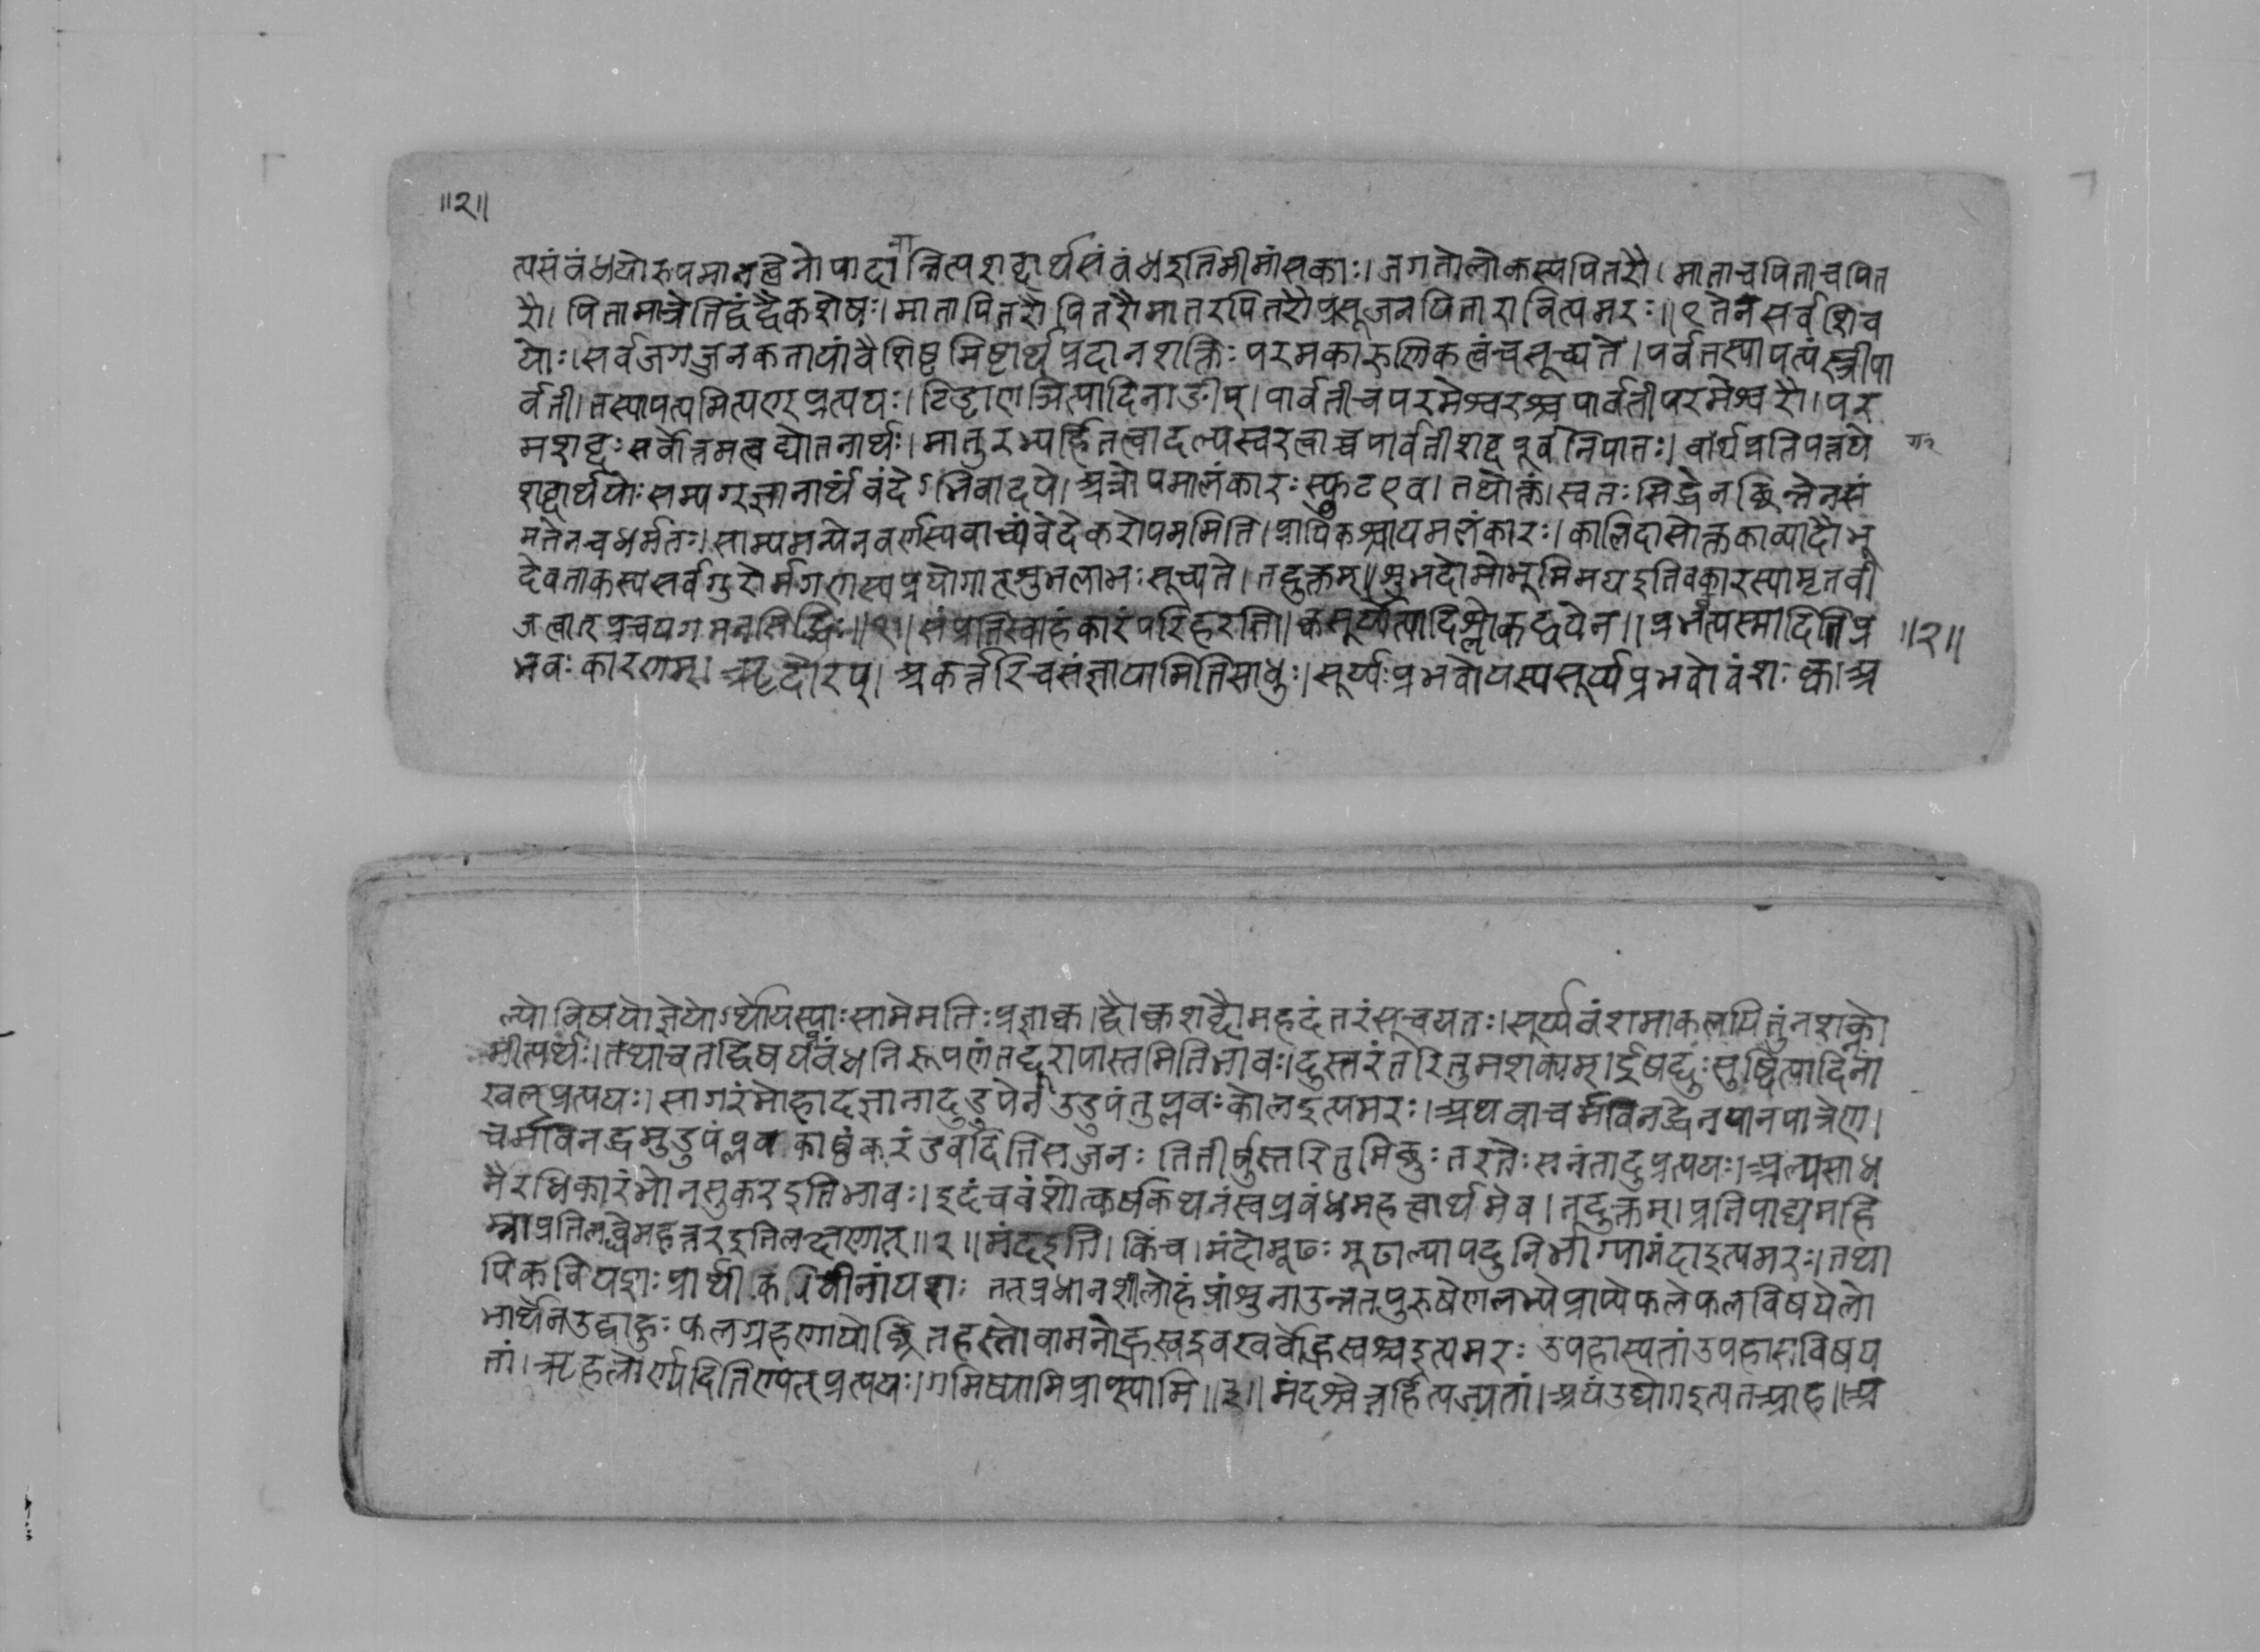 ॥२॥
त्यसंबंधयोरुपमानत्वेनोपादानान्नित्यशब्दार्थसंबंधइतिमीमांसकाः। जगतोलोकस्यपितरौ। माताचपिताचपित
रौ। पितामात्रेतिद्वंद्वैकशेषः। मातापितरौपितरौमातरपितरौप्रसूजनयितारावित्यमरः॥ एतेनसर्वशिव
योः। सर्वजगज्जनकतायांवैशिष्ट्यमिष्टार्थप्रदानशक्तिः परमकारुणिकत्वंचसूच्यते। पर्वतस्यापत्यंस्त्रीपा
र्वती। तस्यापत्यमित्यण्प्रत्ययः। टिड्ढाणञित्यादिनाङीप्। पार्वतीचपरमेश्वरश्चपार्वतीपरमेश्वरौ। पर
मशब्दः सर्वोत्तमत्वद्योतनार्थः। मातुरभ्यर्हितत्वादल्पस्वरत्वाच्चपार्वतीशब्दपूर्वनिपातः। वार्थप्रतिपत्तये
शब्दार्थयोः सम्यग्ज्ञानार्थंवंदेऽभिवादये। अत्रोपमालंकारः स्फुटएव। तथोक्तं। स्वतः सिद्धेनभिन्नेनसं
मतेनचधर्मतः। साम्यमन्येनवर्ण्यस्यवाच्यंवेदेकरोपममिति। प्रायिकश्चायमलंकारः। कालिदासोक्तकाव्यादौभू
देवताकस्यसर्वगुरोर्मगणस्यप्रयोगात्शुभलाभः सूच्यते। तदुक्तम्॥ शुभदोमोभूमिमयइतिवकारस्यामृतवी
जत्वात्प्रचयगमनसिद्धिः॥१॥ संप्रतिस्वाहंकारंपरिहरति॥ क्वसूर्य्येत्यादिश्लोकद्वयेन॥ प्रभवत्यस्मादितिप्र
॥२॥
भवः कारणम्। ऋदोरप्। अकर्त्तरिचसंज्ञायामितिसाधुः। सूर्य्यः प्रभवोयस्यसूर्य्यप्रभवोवंशः क्व। अ
ल्पोविषयोज्ञेयोऽर्थोयस्याः सामेमतिः प्रज्ञाक्व। द्वौक्वशब्दौमहदंतरंसूचयतः। सूर्य्यवंशमाकलयितुंनशक्नो
मीत्यर्थः। तथाचतद्विषयप्रबंधनिरूपणंतदूरापास्तमितिभावः। दुस्तरंतरितुमशक्यम्। ईषद्दुः सुष्वित्यादिना
खल्प्रत्ययः। सागरंमोहादज्ञानादुडुपेनउडुपंतुप्लवः कोलइत्यमरः। अथवाचर्मविनद्धेनपानपात्रेण।
चर्मावनद्धमुडुपंप्लवकाष्ठंकरंडवदितिसज्जनः तितीर्षुस्तरितुमिच्छुः तरतेः सनंतादुप्रत्ययः। अल्पसाध
नैरधिकारंभोनसुकरइतिभावः। इदंचवंशोत्कर्षकथनंस्वप्रबंधमहत्वार्थमेव। तदुक्तम्। प्रतिपाद्यमहि
म्नाप्रतिलब्धेमहत्तरइतिलक्षणात्॥२॥ मंदइति। किंच। मंदोमूढः मूढाल्पापटुनिर्भाग्यामंदाइत्यमरः। तथा
पिकवियशः प्रार्थीकवीनांयशः तत्प्रधानशीलोहंप्रांशुनाउन्नतपुरुषेणलभ्येप्राप्येफलेफलविषयेलो
भार्थेनउद्बाहुः फलग्रहणायोच्छ्रितहस्तोवामनोह्रस्वइवखर्वोह्रस्वश्चइत्यमरः उपहास्यतांउपहासविषय
तां। ऋहलोर्ण्यदितिण्यत्प्रत्ययः। गमिष्यामिप्राप्स्यामि॥३॥ मंदश्चेत्तर्हित्यज्यतां। अयंउद्योगइत्यतआह॥ अ